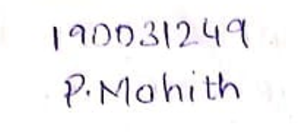 190031249
P.Mohith